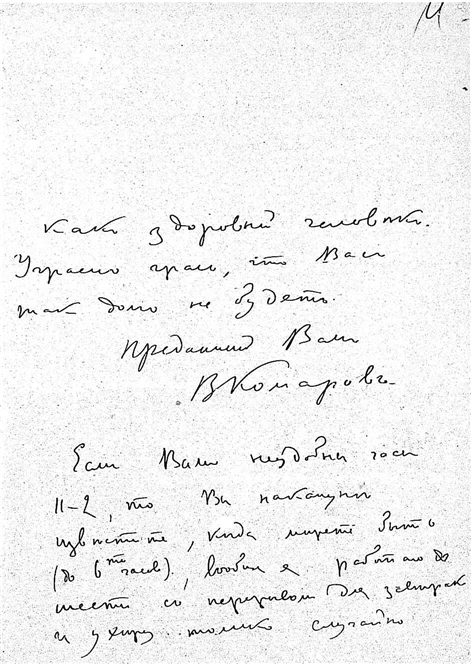 11
какъ здоровый человѣкъ.
Ужасно грам, что Васъ
такъ долго не будетъ.
Преданный Вамъ
ВКомаровъ.
Если Вамъ неудобны часы
11-2, то Вы накануне
извѣстите, когда можете быть
(до 6ти часов), вообще я работаю до
шести со перерывом для завтрак
и ухожу только случайно